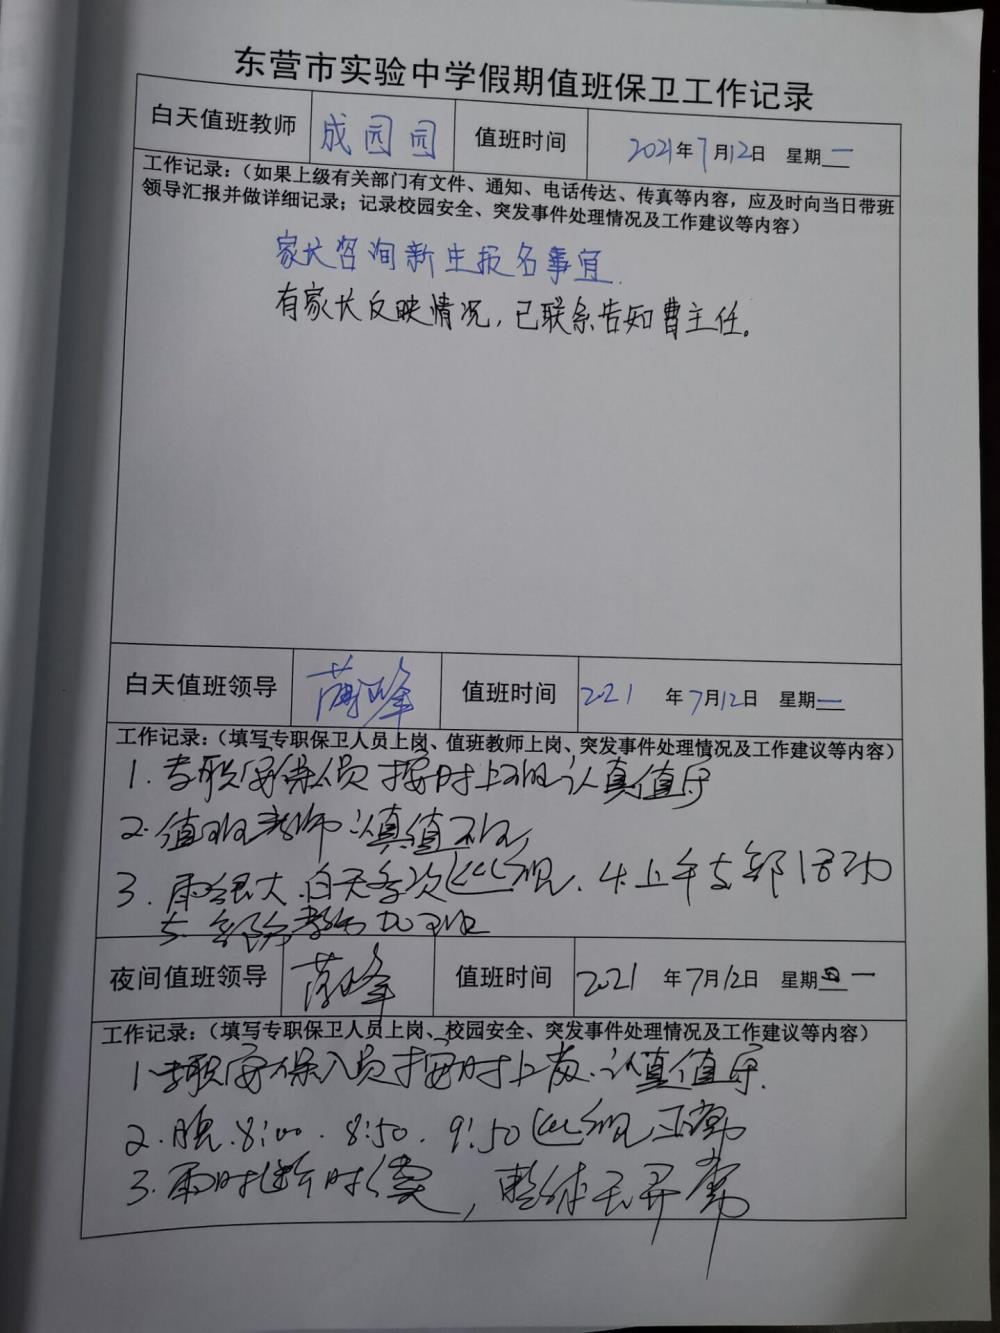 东营市实验中学假期值班保卫工作记录
白天值班教师 成园园 值班时间 2021年7月12日 星期一
工作记录：（如果上级有关部门有文件、通知、电话传达、传真等内容，应及时向当日带班
领导汇报并做详细记录；记录校园安全、突发事件处理情况及工作建议等内容）
家长咨询新生报名事宜.
有家长反映情况，已联系告知曹主任。
白天值班领导 值班时间 2021年7月12日 星期一
工作记录：（填写专职保卫人员上岗、值班教师上岗、突发事件处理情况及工作建议等内容）
1. 专职安保人员按时上班认真值守
2. 值班老师认真值班
3. 雨很大，白天多次巡视. 4. 上午支部活动
5. 部分教师加班
夜间值班领导 值班时间 2021年7月12日 星期一
工作记录：（填写专职保卫人员上岗、校园安全、突发事件处理情况及工作建议等内容）
1. 专职安保人员按时上岗.认真值守.
2. 晚.8:00. 8:50. 9:50巡视正常
3. 雨时断时续，整体无异常